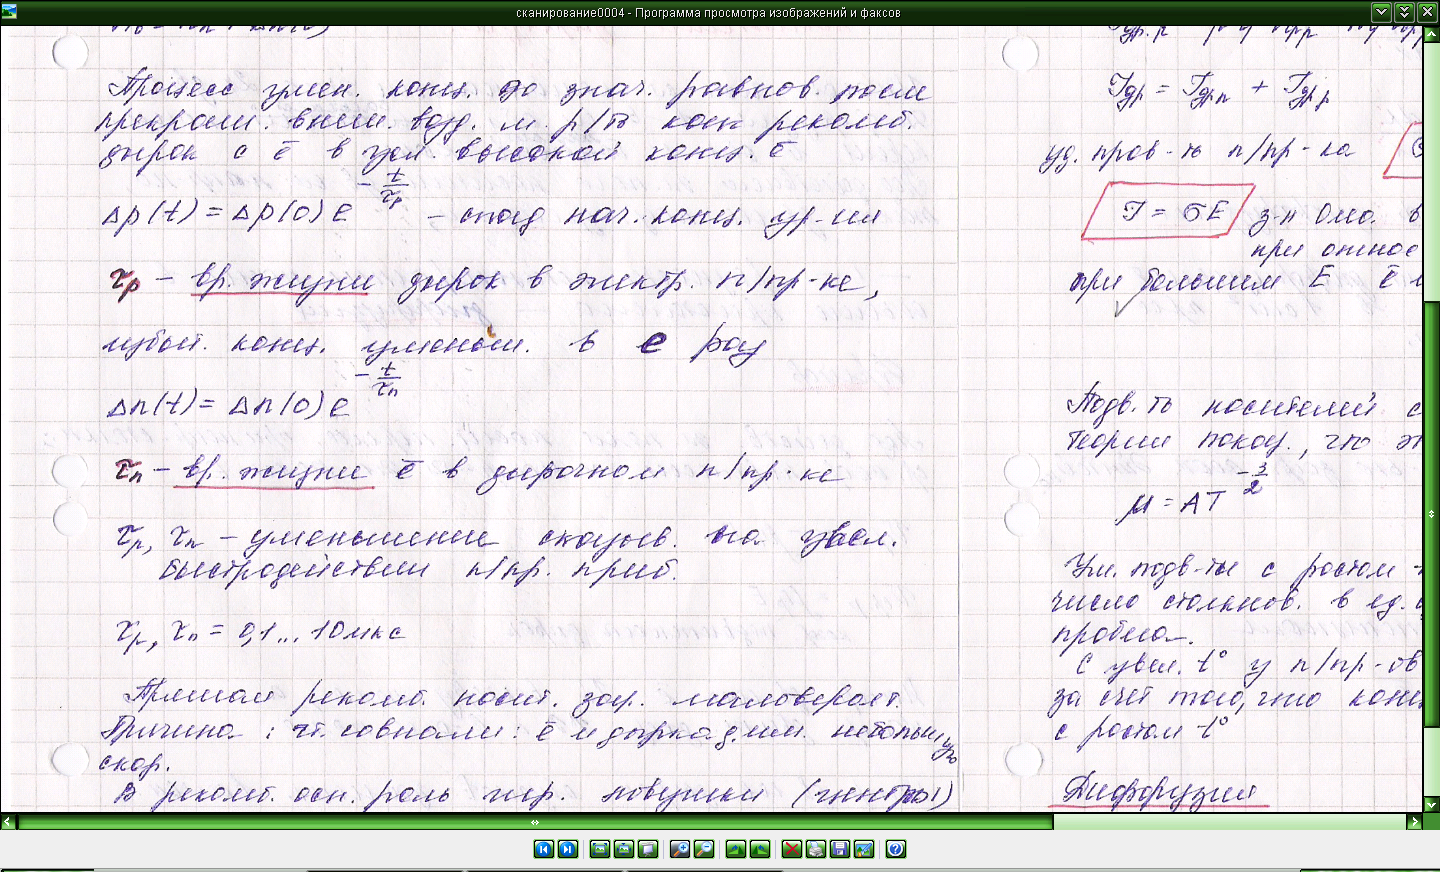 сканирование0004 - Программа просмотра изображений и факсов
Процесс умен. конц. до знач. равнов. после
прекращ. внеш. возд. м. р/В как рекомб.
дырок с ē в усл. высокой конц. ē
Δp(t) = Δp(0) e^(-t/τp) – спад нач. конц. ур-ия
τp – вр. жизни дырок в электр. п/пр-ке,
избыт. конц. уменьш. в e раз
Δn(t) = Δn(0) e^(-t/τn)
τn – вр. жизни ē в дырочном п/пр-ке
τp, τn – уменьшение сказыв. на увел.
быстродействии п/пр. приб.
τp, τn = 0,1... 10 мкс
Прямая рекомб. носит. зар. маловероят.
Причина : чт. совпали : ē и дырка д. им. небольшую
скор.
В рекомб. осн. роль игр. ловушки (центры)
Jдр = Jдрn + Jдрp
уд. пров-ть п/пр-ка
J = σE з-н Ома. в
при относ
при большем E ē
Подв-ть носителей с
теории показ., что э
μ = AT^(-3/2)
Ум. подв-ти с ростом
число столкнов. в ед.
пробега.
С увел. t° у п/пр-ов
за счет того, что конц
с ростом t°
Диффузия